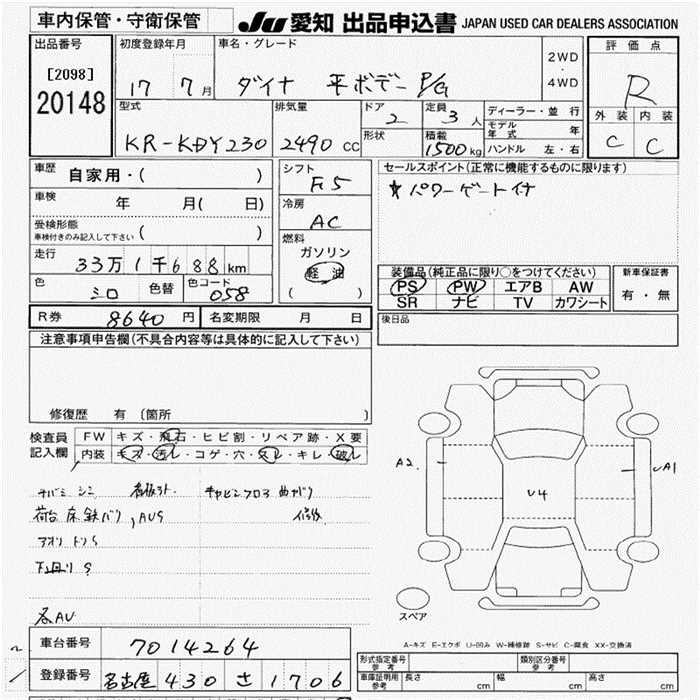 車内保管・守衛保管
JU 愛知 出品申込書 JAPAN USED CAR DEALERS ASSOCIATION
出品番号
[2098]
20148
初度登録年月
17 7月
車名・グレード
ダイナ 平ボデー P/G
2WD
・
4WD
評価点
R
外装 内装
C C
型式
KR-KDY230
排気量
2490 cc
ドア
2
形状
定員
3人
積載
1500kg
ディーラー・並行
モデル年式 年
ハンドル 左・右
車歴 自家用・( )
車検 年 月( 日)
受検形態
車検付きのみ記入して下さい ( )
走行 33万1千688km
色 シロ 色替 色コード 058
シフト
F5
冷房
AC
燃料
ガソリン
軽油
( )
セールスポイント(正常に機能するものに限ります)
★パワーゲート付
装備品(純正品に限り○をつけてください)
PS PW エアB AW
SR ナビ TV カワシート
新車保証書
有・無
R券 8640円 名変期限 月 日
後日品
注意事項申告欄(不具合内容等は具体的に記入して下さい)
修復歴 有 〔箇所 〕
検査員記入欄
FW キズ・飛石・ヒビ割・リペア跡・X要
内装 キズ・汚レ・コゲ・穴・スレ・キレ・破レ
荷台床鉄バリ,AUS
アオリ トリS
下回りS
各AU
A2
U4
A1
スペア
A-キズ E-エクボ U-凹み W-補修跡 S-サビ C-腐食 XX-交換済
車台番号 7014264
登録番号 名古屋 430 さ 1706
形式指定番号
参考
類別区分番号
参考
車庫証明用
参考
長さ cm 幅 cm 高さ cm